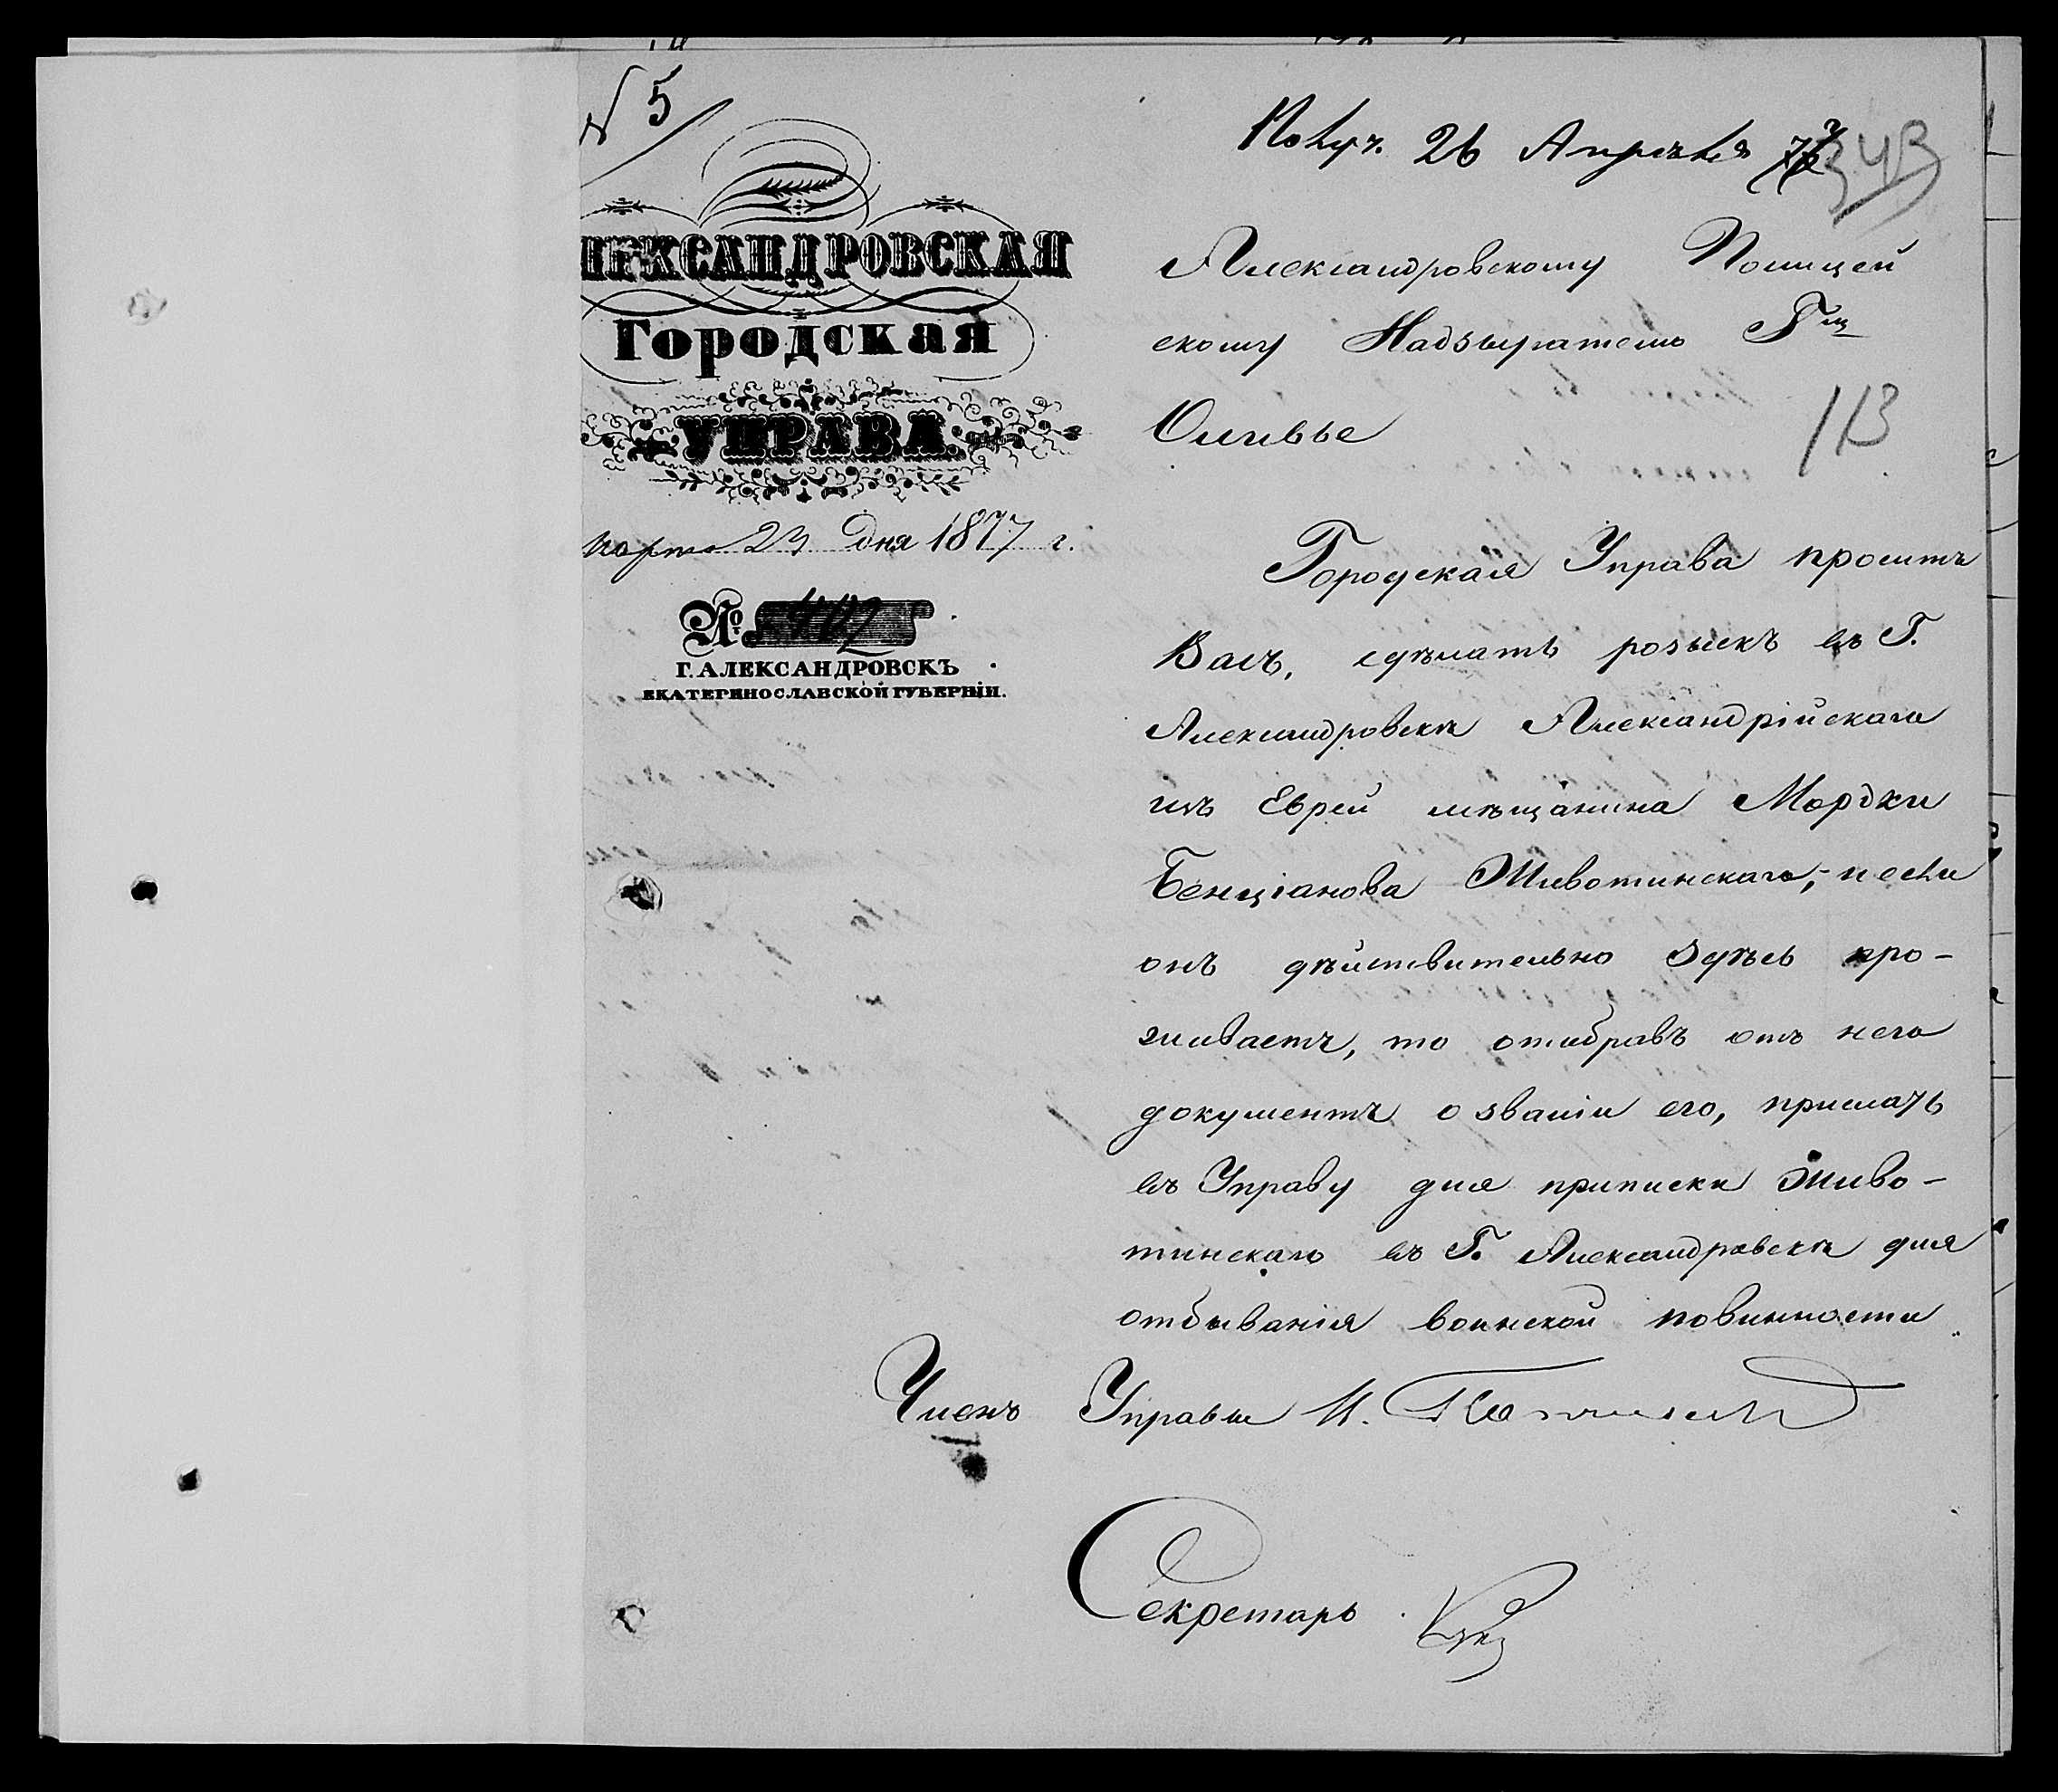 № 5
Получ. 26 Апрѣля 77
343
ЛЕКСАНДРОВСКАЯ
Городская
УПРАВА.
марта 23 дня 1877 г.
№ 402
Г. АЛЕКСАНДРОВСКЪ
ЕКАТЕРИНОСЛАВСКОЙ ГУБЕРНІИ.
Александровскому Полицей
скому Надзырателю Гну
Оливье
113
Городская Управа проситъ
Васъ, сдѣлать розыскъ въ Г.
Александровскѣ Александрійскаго
изъ Еврей мѣщанина Мордки
Бенціанова Животинскаго, и если
онъ дѣйствительно здѣсь про-
живаетъ, то отобравъ отъ него
документъ о званіи его, прислать
въ Управу для приписки Живо-
тинскаго въ Г. Александровскѣ для
отбыванія воинской повинности
Членъ Управы И.
Секретарь